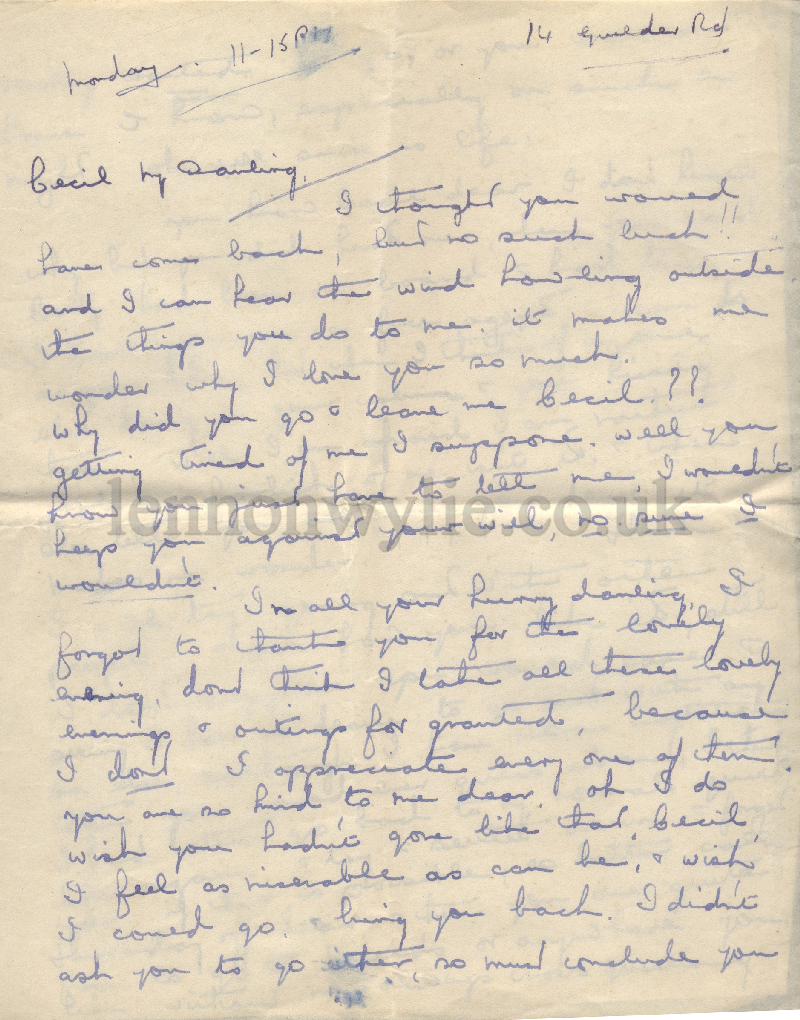 14 Guilder Rd
Monday. 11-15P
Cecil My Darling,
I thought you would
have come back, but no such luck!!
and I can hear the wind howling outside.
the things you do to me. it makes me
wonder why I love you so much.
why did you go & leave me Cecil.??.
getting tired of me I suppose. well you
know you just have to tell me, I wouldn't
keep you against your will, no sure I
wouldn't.
In all your hurry darling, I
forgot to thank you for the lovely
evening, dont think I take all these lovely
evenings & outings for granted, because
I dont I appreciate every one of them.
you are so kind to me dear. oh I do
wish you hadn't gone like that, Cecil,
I feel as miserable as can be, & wish
I could go. & bring you back. I didn't
ask you to go either, so must conclude you
lennonwylie.co.uk